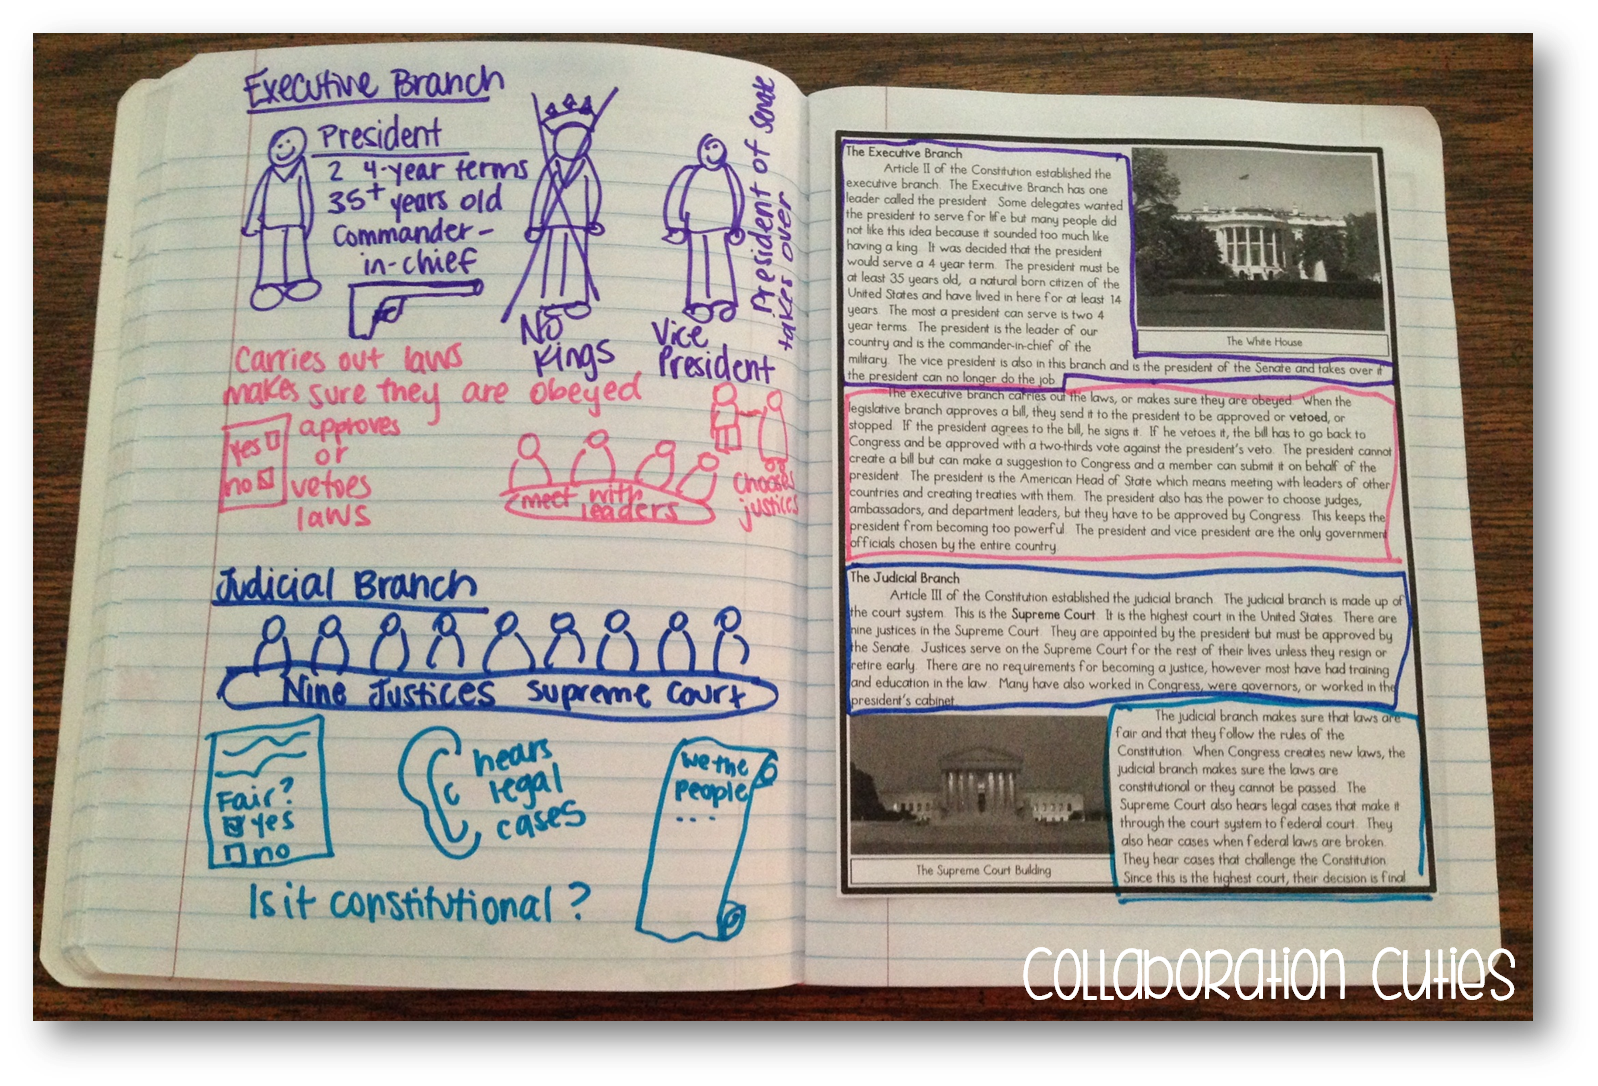 Executive Branch
President
2 4-year terms
35+ years old
Commander-
in-chief
No
Kings
Vice
President
President of Senate
takes over
Carries out laws
makes sure they are obeyed
yes
no
approves
or
vetoes
laws
meet with
leaders
Chooses
justices
Judicial Branch
Nine Justices Supreme Court
Fair?
yes
no
hears
legal
cases
we the
people
...
Is it constitutional?
The Executive Branch
Article II of the Constitution established the
executive branch. The Executive Branch has one
leader called the president. Some delegates wanted
the president to serve for life but many people did
not like this idea because it sounded too much like
having a king. It was decided that the president
would serve a 4 year term. The president must be
at least 35 years old, a natural born citizen of the
United States and have lived in here for at least 14
years. The most a president can serve is two 4
year terms. The president is the leader of our
country and is the commander-in-chief of the
military. The vice president is also in this branch and is the president of the Senate and takes over if
the president can no longer do the job.
The White House
The executive branch carries out the laws, or makes sure they are obeyed. When the
legislative branch approves a bill, they send it to the president to be approved or vetoed, or
stopped. If the president agrees to the bill, he signs it. If he vetoes it, the bill has to go back to
Congress and be approved with a two-thirds vote against the president's veto. The president cannot
create a bill but can make a suggestion to Congress and a member can submit it on behalf of the
president. The president is the American Head of State which means meeting with leaders of other
countries and creating treaties with them. The president also has the power to choose judges,
ambassadors, and department leaders, but they have to be approved by Congress. This keeps the
president from becoming too powerful. The president and vice president are the only government
officials chosen by the entire country.
The Judicial Branch
Article III of the Constitution established the judicial branch. The judicial branch is made up of
the court system. This is the Supreme Court. It is the highest court in the United States. There are
nine justices in the Supreme Court. They are appointed by the president but must be approved by
the Senate. Justices serve on the Supreme Court for the rest of their lives unless they resign or
retire early. There are no requirements for becoming a justice, however most have had training
and education in the law. Many have also worked in Congress, were governors, or worked in the
president's cabinet.
The judicial branch makes sure that laws are
fair and that they follow the rules of the
Constitution. When Congress creates new laws, the
judicial branch makes sure the laws are
constitutional or they cannot be passed. The
Supreme Court also hears legal cases that make it
through the court system to federal court. They
also hear cases when federal laws are broken.
They hear cases that challenge the Constitution.
Since this is the highest court, their decision is final.
The Supreme Court Building
Collaboration Cuties